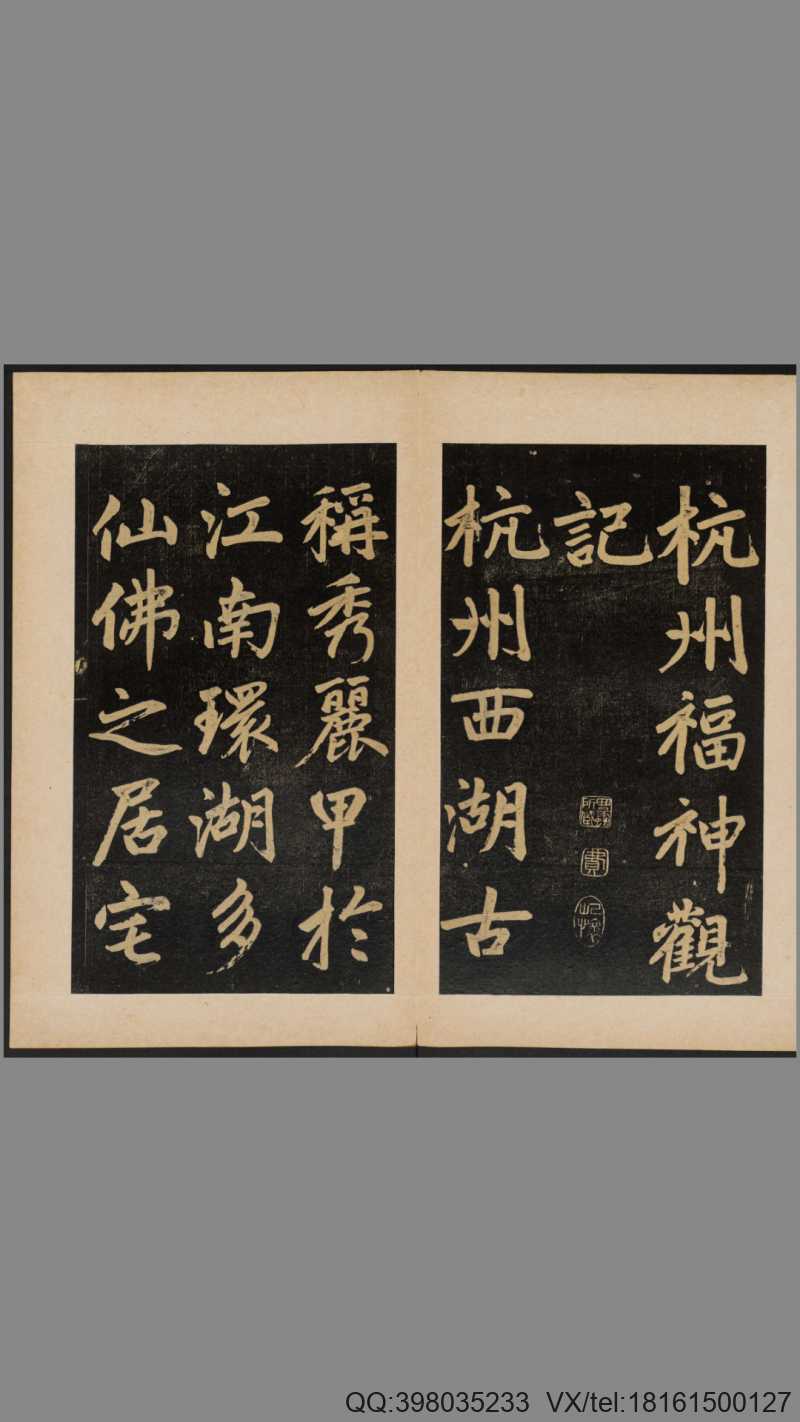 杭州福神觀
記
杭州西湖古
稱秀麗甲於
江南環湖多
仙佛之居宅
QQ:398035233 VX/tel:18161500127